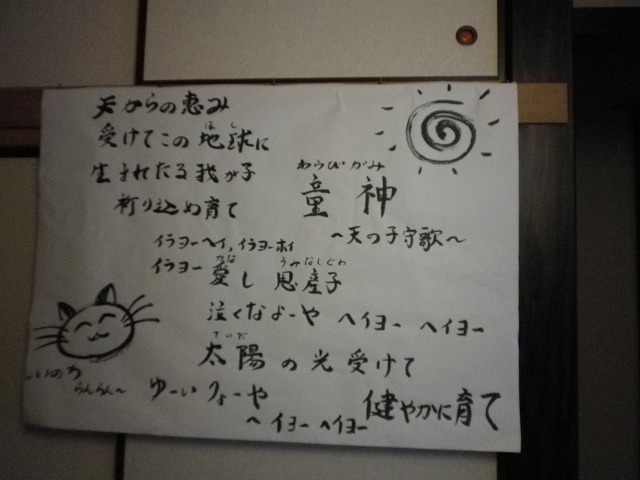 天からの恵み
受けてこの地球に
ほし
生まれたる我が子
祈り込め育て
わらびがみ
童神
～天の子守歌～
イラヨーヘイ,イラヨーホイ
イラヨー 愛し 思産子
かな うみなしぐわ
泣くなよーや ヘイヨー ヘイヨー
太陽の光受けて
てぃだ
ゆーいりょーや
ヘイヨー ヘイヨー
健やかに育て
～いのち
らんらん～